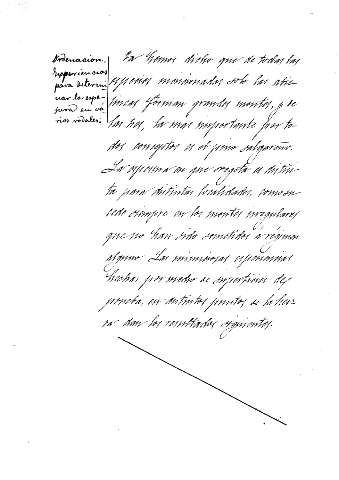 Ordenacion.
Experiencias
para determi-
nar la espe-
sura en va-
rios rodales.
Ya hemos dicho que de todas las
especies mencionadas solo las
forman grandes montes, y de
las tres, la mas importante por to-
dos conceptos es el pino salgareño.
La espesura en que vegeta es distin-
ta para distintas localidades, como su-
cede siempre en los montes irregulares
que no han sido sometidos á régimen
alguno. Las numerosas esperiencias
hechas por medio de superficies de
prueba, en distintos puntos de la
dan los resultados siguientes.